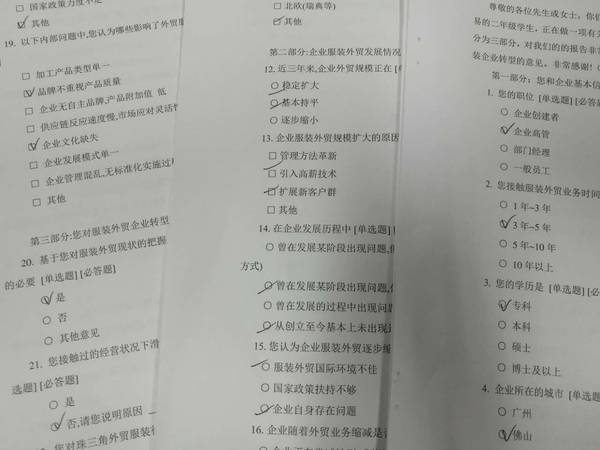 □ 国家政策力度不足
□ 其他
19. 以下内部问题中,您认为哪些影响了外贸服
□ 加工产品类型单一
□ 品牌不重视产品质量
□ 企业无自主品牌,产品附加值 低
□ 供应链反应速度慢,市场应对灵活性
□ 企业文化缺失
□ 企业发展模式单一
□ 企业管理混乱,无标准化实施过
□ 其他
第三部分:您对服装外贸企业转型
20. 基于您对服装外贸现状的把握
的必要 [单选题] [必答题]
○ 是
○ 否
○ 其他意见
21. 您接触过的经营状况下滑
选题] [必答题]
○ 是
○ 否,请您说明原因
您对珠三角外贸服装
□ 北欧(瑞典等)
□ 其他
第二部分:企业服装外贸发展情况
12. 近三年来,企业外贸规模正在 [单
○ 稳定扩大
○ 基本持平
○ 逐步缩小
13. 企业服装外贸规模扩大的原因
□ 管理方法革新
□ 引入高薪技术
□ 扩展新客户群
□ 其他
14. 在企业发展历程中 [单选题] [
○ 曾在发展某阶段出现问题,
方式)
○ 曾在发展某阶段出现问题,
○ 曾在发展的过程中出现问题
○ 从创立至今基本上未出现
15. 您认为企业服装外贸逐步缩
○ 服装外贸国际环境不佳
○ 国家政策扶持不够
○ 企业自身存在问题
16. 企业随着外贸业务缩减是
尊敬的各位先生或女士,你们
易的二年级学生,正在做一项有关
分为三部分,对我们的的报告非常
装企业转型的意见。非常感谢!
第一部分:您和企业基本信
1. 您的职位 [单选题] [必答题
○ 企业创建者
○ 企业高管
○ 部门经理
○ 一般员工
2. 您接触服装外贸业务时间
○ 1 年~3 年
○ 3 年~5 年
○ 5 年~10 年
○ 10 年以上
3. 您的学历是 [单选题] [必
○ 专科
○ 本科
○ 硕士
○ 博士及以上
4. 企业所在的城市 [单选题
○ 广州
○ 佛山